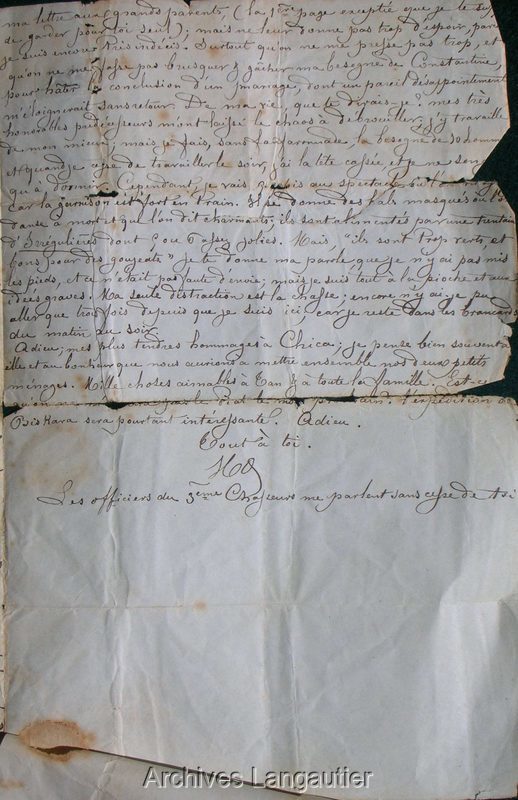 ma lettre aux grands parents (la 1ère page exceptée que je te
de garder pour toi seul); mais ne leur donne pas trop d'espoir, parce
je suis encore très indécis. Surtout qu'on ne me presse pas trop, et
qu'on ne me fasse pas brusquer & gâcher ma besogne de Constantine,
pour hâter la conclusion d'un mariage, dont un pareil désappointement
m'éloignerait sans retour. De ma vie, que te dirais-je? mes très
honorables prédécesseurs m'ont laissé le chaos à débrouiller, j'y travaille
de mon mieux; mais je fais, sans fanfaronnade, la besogne de 30 homm
et quand je cesse de travailler le soir, j'ai la tête cassée et je ne son
qu'à dormir. Cependant, je vais, quelquefois au spectacle
car la garnison est fort en train. Il se donne des bals masqués où l'o
danse à mort et que l'on dit charmants; ils sont alimentés par une trentain
d'Irrégulières dont 5 ou 6 assez jolies. Mais, "ils sont trop verts, et
bons pour des goujats" je te donne ma parole que je n'y ai pas mis
les pieds, et ce n'était pas faute d'envie; mais je suis tout à la pioche et aux
idées graves. Ma seule distraction est la chasse; encore n'y ai-je pu
aller que trois fois depuis que je suis ici, car je reste dans les brancards
du matin au soir.
Adieu; mes plus tendres hommages à Chica; je pense bien souvent à
elle et au bonheur que nous aurions à mettre ensemble nos deux petits
ménages. Mille choses aimables à Tan & à toute la famille. Est-ce
qu'on
l'expédition de
Biskara sera pourtant intéressante. Adieu.
Tout à toi.
Les officiers du 3ème Chasseurs me parlent sans cesse de toi
Archives Langautier